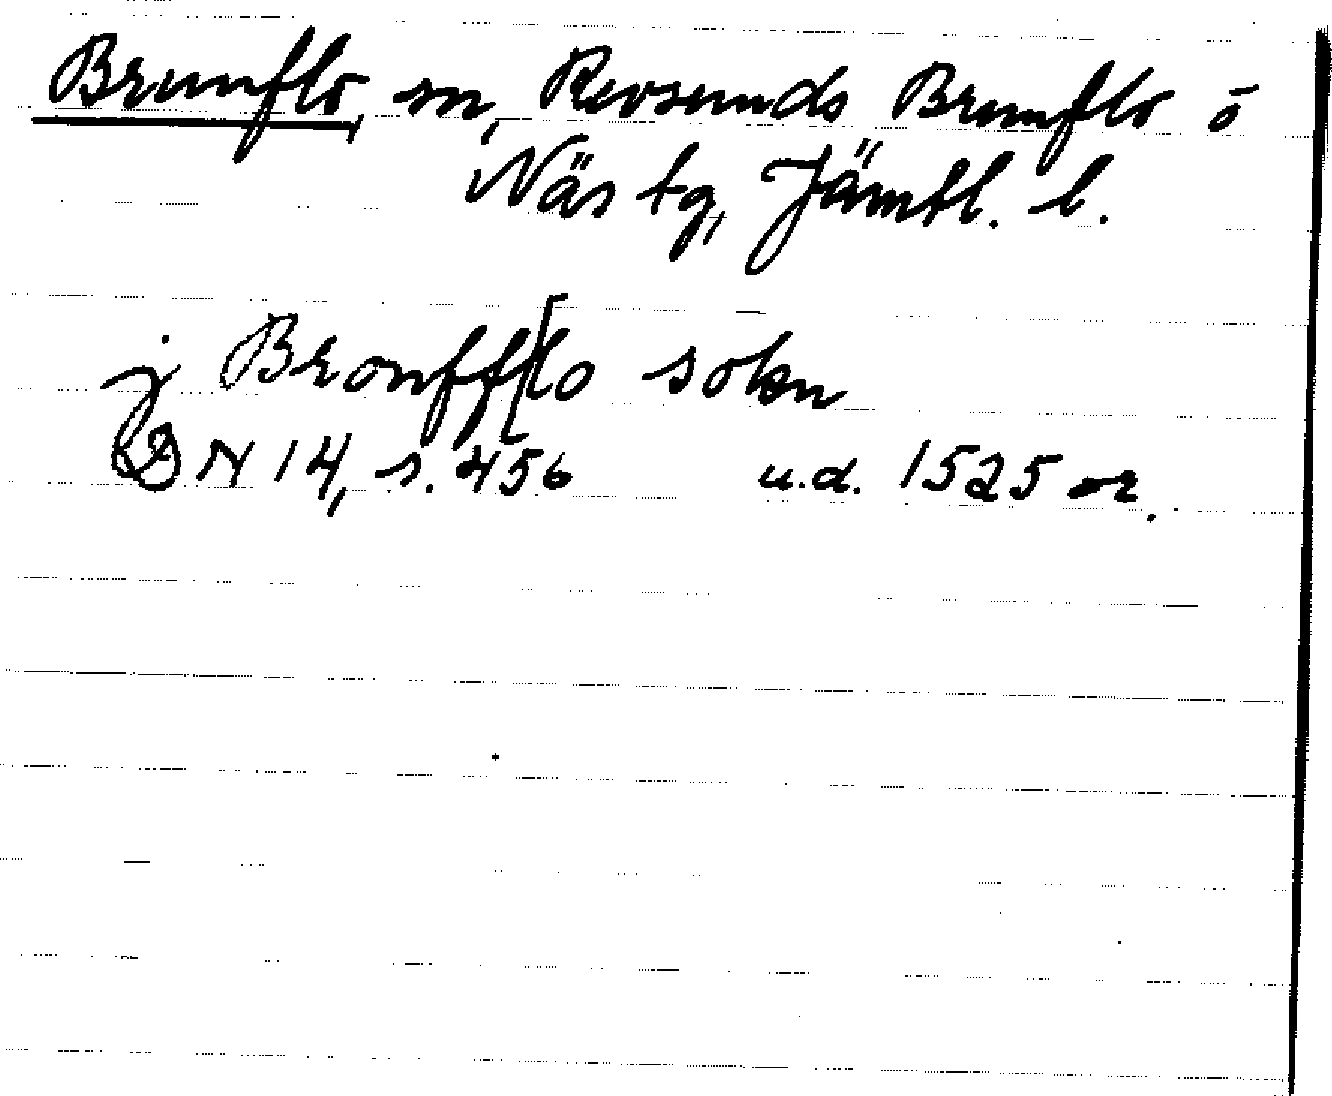 Brunflo, sn, Revsunds Brunflo o
Näs tg, Jämtl. l.
j Bronff[lo sokn
DN 14, s. 456 u.d. 1525 or.